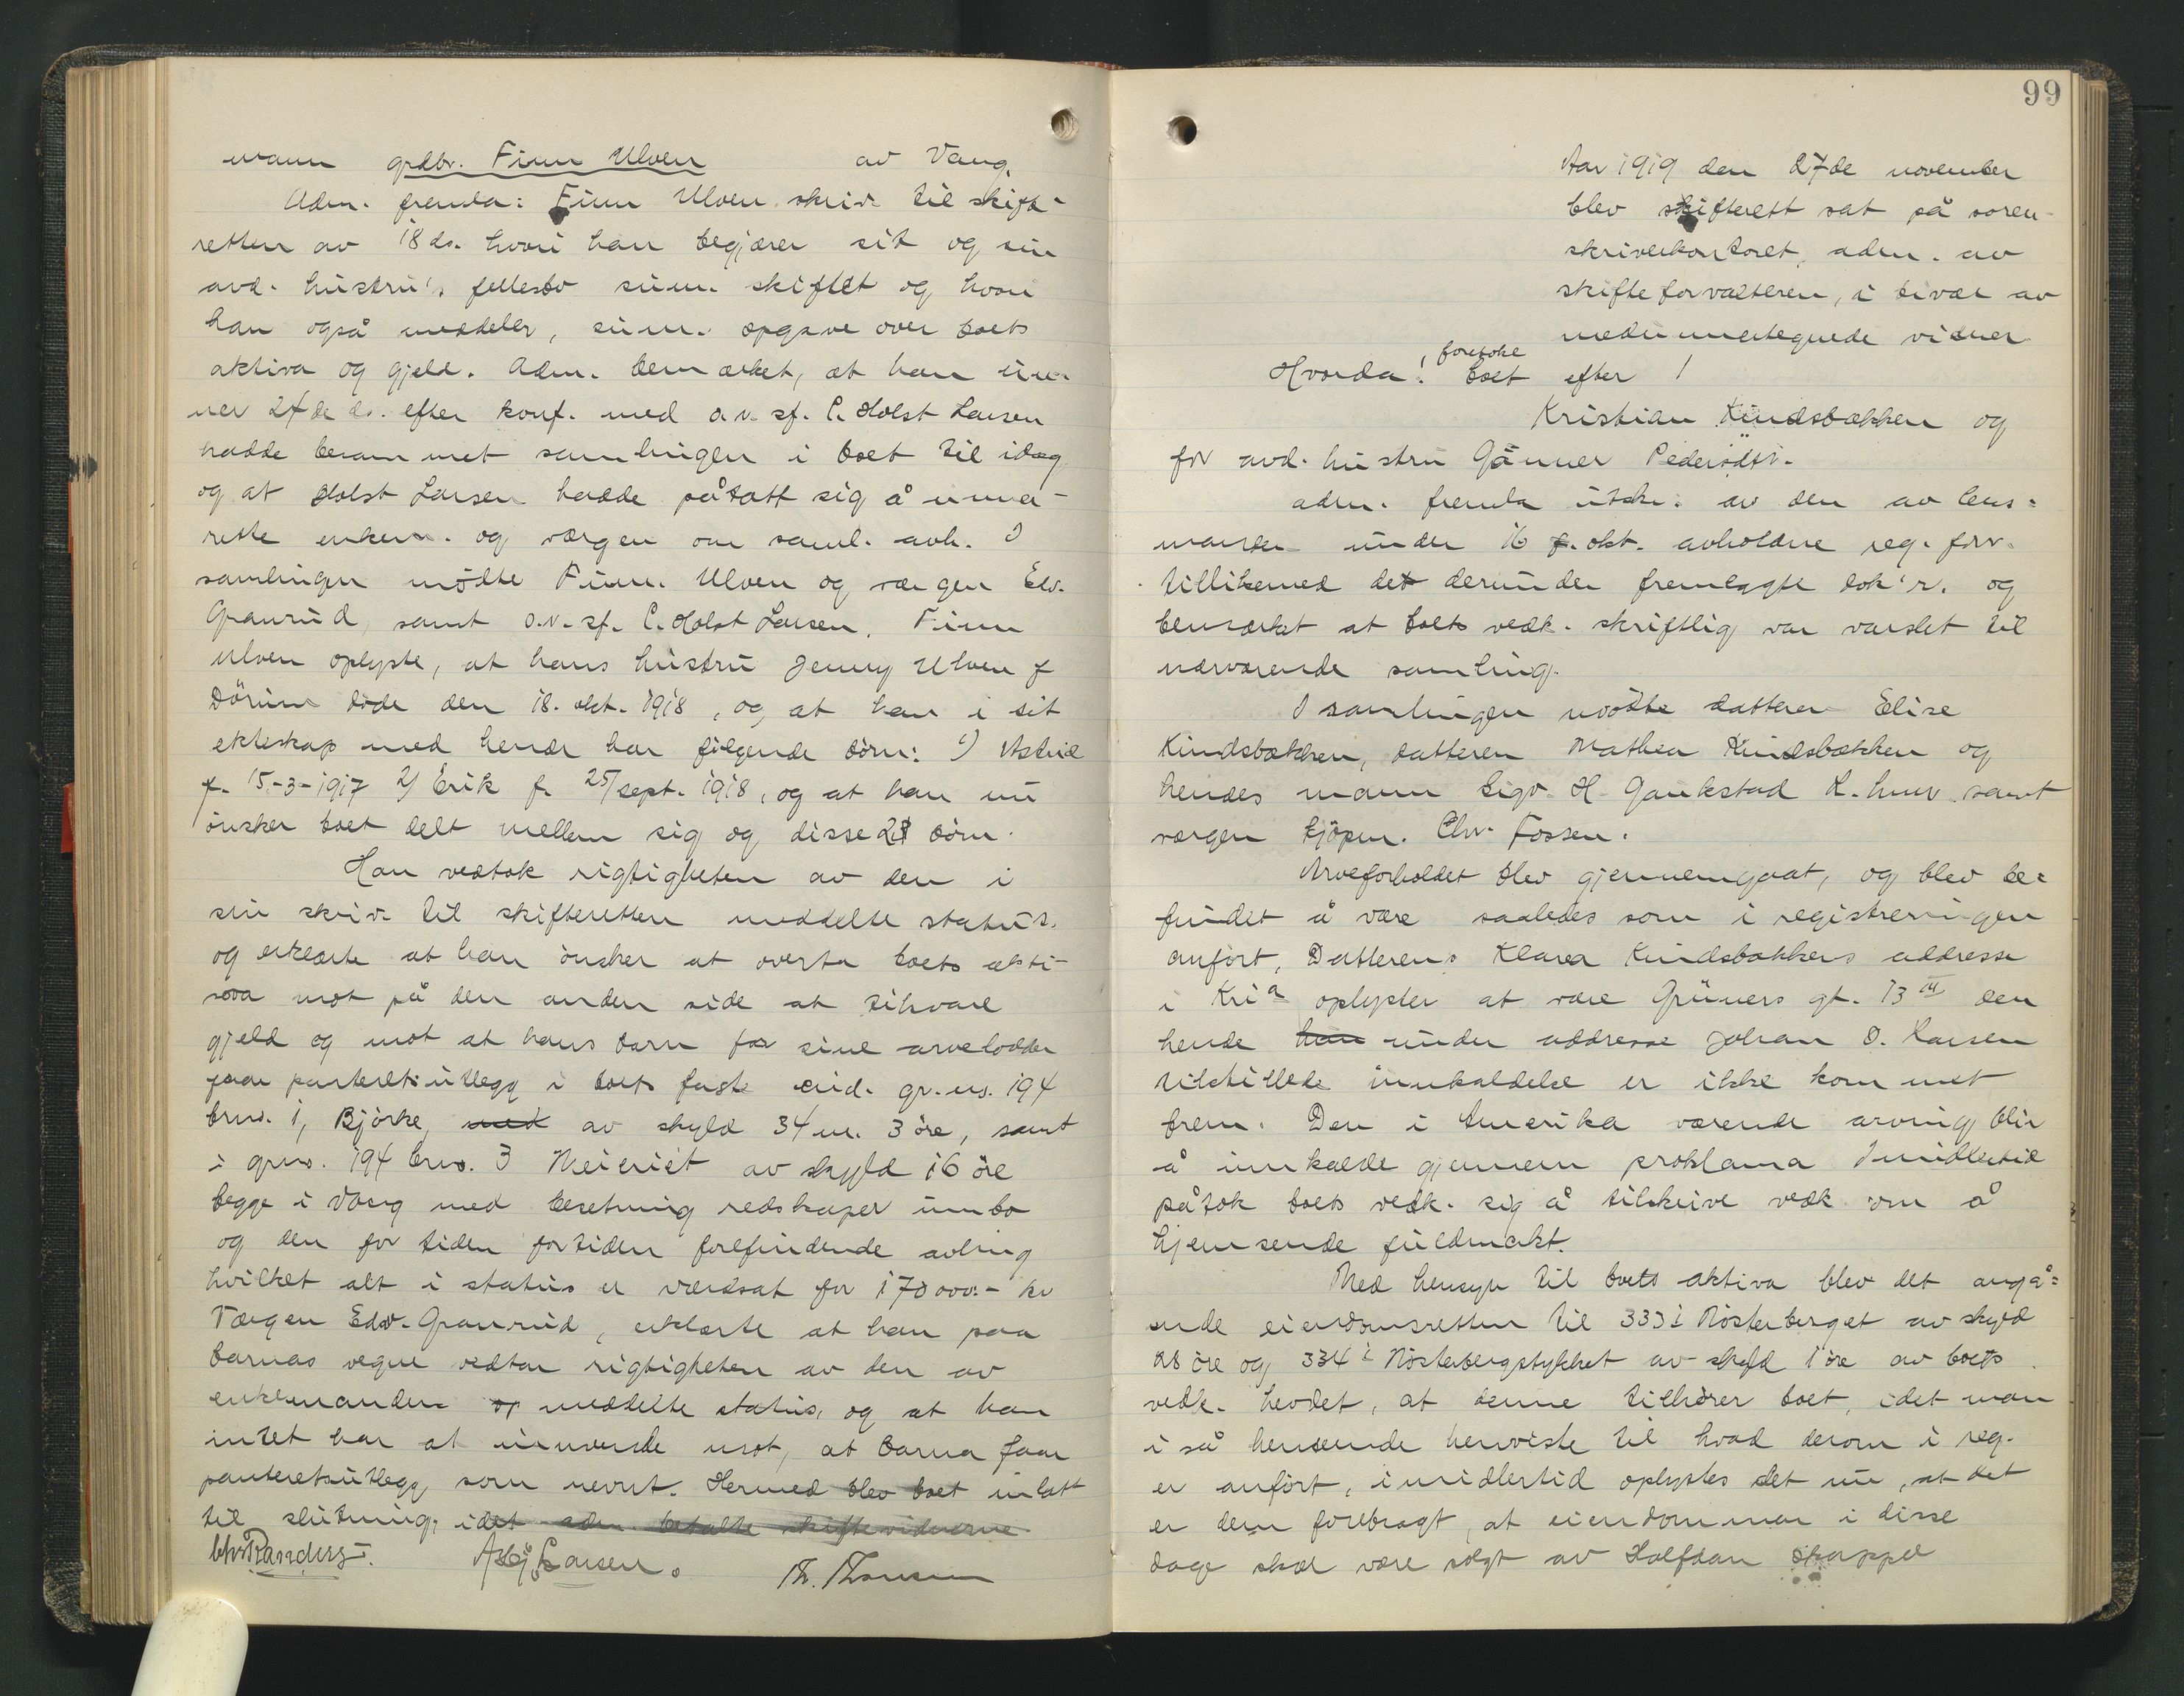 mann grdbr. Finn Ulven av Vang.
Adm. fremla: Finn Ulven skriv. til skift-
retten av 18 ds. hvori han begjærer sit og sin
avd. hustru's fellesbo sum. skiftet og hvori
han også meddeler, sum. opgave over boets
aktiva og gjeld. Adm. bemærket, at han
ner 24de ds. efter konf. med o.r.sf. C. Holst Larsen
hadde berammet samlingen i boet til idag
og at Holst Larsen hadde påtatt sig åunner-
rette enkem. og værgen om saml. avh. I
samlingen mødte Finn Ulven og værgen Edv.
Granrud, samt o.r.sf. C. Holst Larsen. Finn
Ulven oplyste, at hans hustru Jenny Ulven f
Dörum döde den 18. okt. 1918, og at han i sit
ekteskap med hende har fölgende börn: 1) Astrid
f. 15-3-1917 2) Erik f. 25/sept. 1918, og at han nu
önsker boet delt mellem sig og disse 2 börn.
Han vedtok rigtigheten av den i
sin skriv. til skifteretten meddelte status.
og erklærte at han önsker at overta boets akti-
va mot på den anden side at tilsvare
gjeld og mot at hans barn for sine arvelodder
faar panteretsutlegg i boets faste eied. gr.no. 194
brno. 1, Björke, med av skyld 34 m. 3 öre, samt
i grno. 194 brno. 3 Meieriet av skyld 16 öre
begge i Vang med besetning redskaper innbo
og den for tiden fortiden forefindende avling
hvilket alt i status er værdsat for 170000.- kr
Værgen Edv. Granrud, erklærte at han paa
barnas vegne vedtar rigtigheten av den av
enkemanden op meddelte status, og at han
intet har at innvende mot, at barna faar
panteretsutlegg som nevnt. Hermed blev boet inlatt
til slutning, idet adm. betalte skiftevidnerne
Chr Randers. Larsen. Th. Thorsen
99
Aar 1919 den 27de november
blev skifterett sat på soren-
skriverkontoret, adm. av
skifteforvalteren, i bivær av
medunnertegnede vidner
Hvorda: foretoke boet efter
Kristian Kindsbækken og
for avd. hustru Gunner Pedersdtr.
adm. fremla utskr. av den av lens-
manden under 16 f. okt. avholdne reg. forr.
tillikemed det derunder fremlagte dok'r. og
bemærket at boets vedk. skriftlig var varslet til
nærværende samling.
I samlingen mödte datteren Elise
Kindsbækken, datteren Mathea Kindsbækken og
hendes mann Sigv. H. Gaukstad samt
værgen kjöpm. Chr. Fossen.
Arveforholdet blev gjennemgaat, og blev be-
fundet å være saaledes som i registreringen
anfört, Datterens Klara Kindsbækkens addresse
i Kria oplystes at være Grüners gt. 13 III den
hende han under addresse Johan O. Larsen
tilstillede innkaldelse er ikke kommet
frem. Den i Amerika værende arving blir
å innkalde gjennem proklama Imidlertid
påtok boets vedk. sig å tilskrive vedk om å
hjemsende fuldmakt.
Med hensyn til boets aktiva blev det angå-
ende eiendomsretten til 333 i Nösterberget av skyld
28 öre og 334 i Nösterbergstykket av skyld 1 öre av boets
vedk. hevdet, at denne tilhörer boet, idet man
i så henseende henviste til hvad derom i reg.
er anfört, imidlertid oplystes det nu, at det
er dem forebragt, at eiendommen i disse
dage skal være solgt av Halfdan Skappel